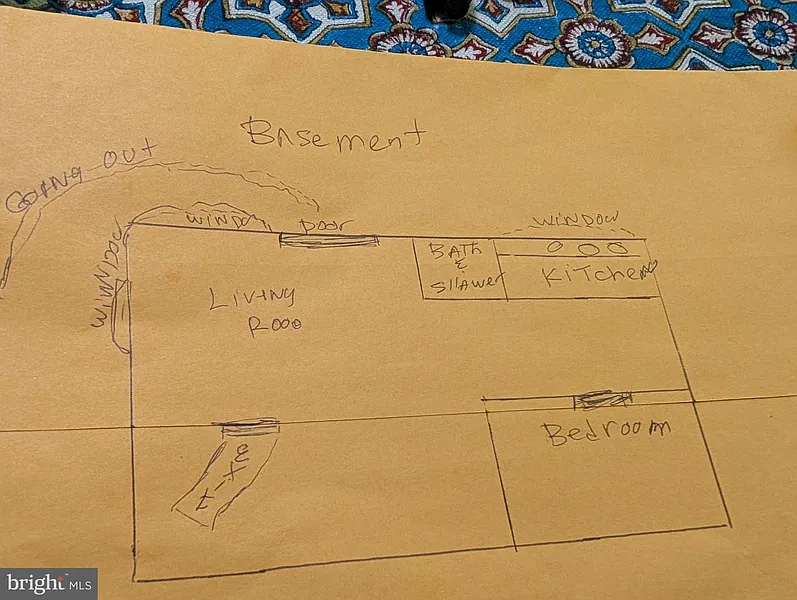 Basement
GOING OUT
WINDO
Door
WINDOW
WINDOW
BATH
&
SHAWER
KITCHEN
LIVING
ROOO
EXIT
Bedroom
bright MLS